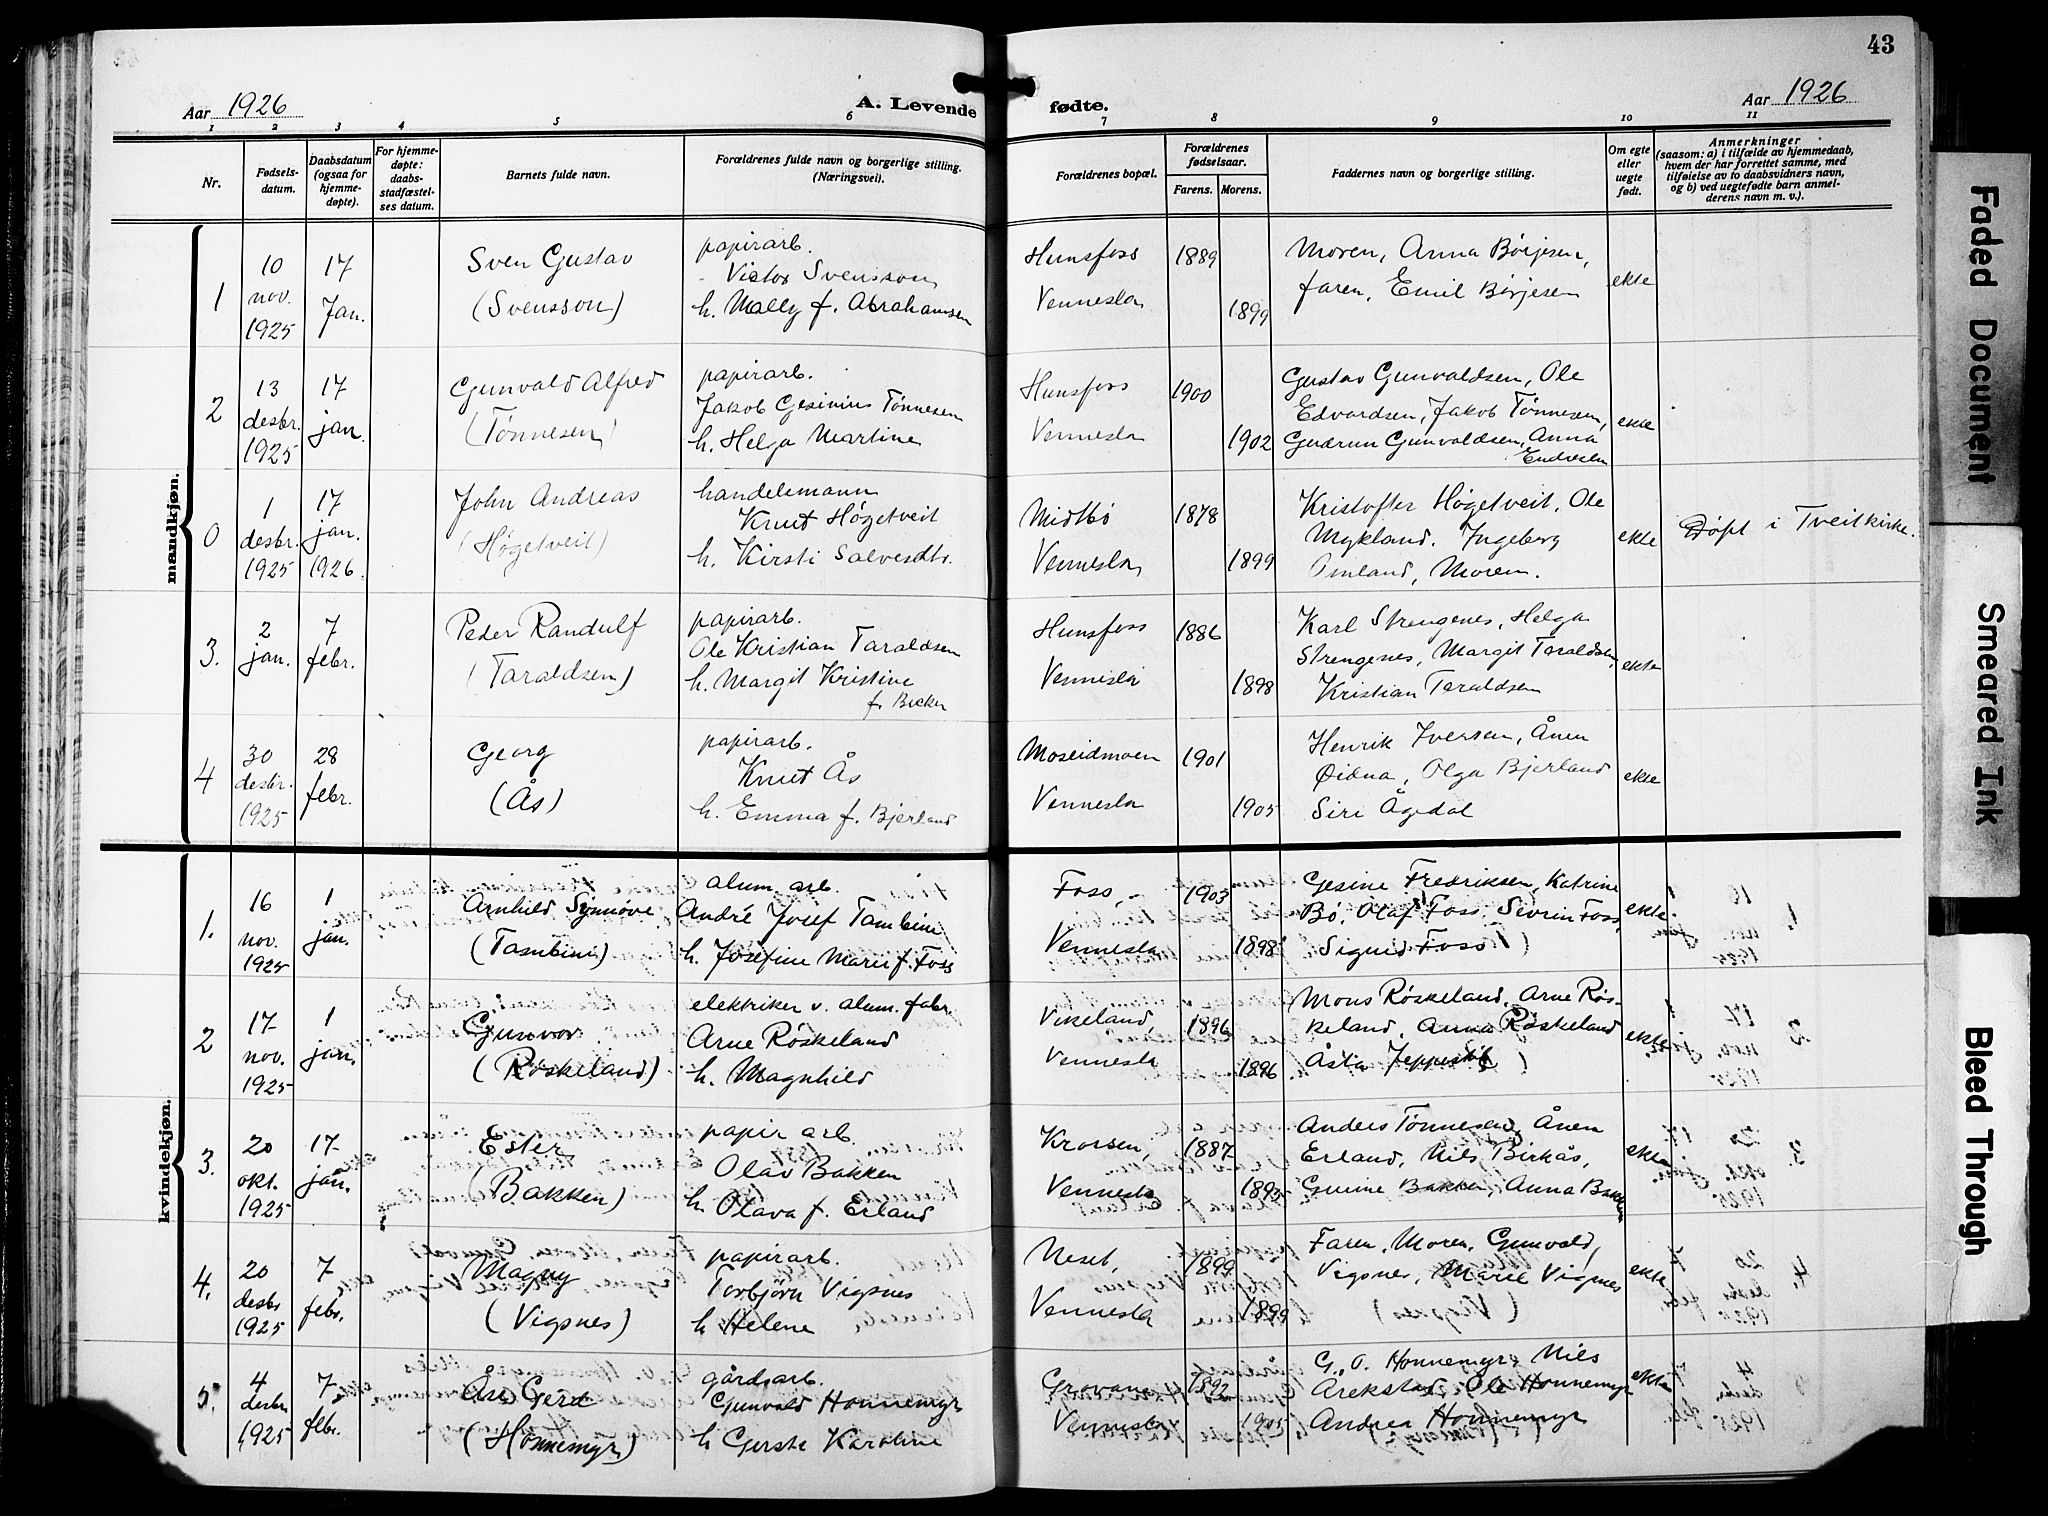 43
Aar 1926
A. Levende fødte.
Aar 1926
1 2 3 4 5 6 7 8 9 10 11
Nr.
Fødsels-
datum.
Daabsdatum
(ogsaa for
hjemme-
døpte).
For hjemme-
døpte:
daabs-
stadfæstel-
ses datum.
Barnets fulde navn.
Forældrenes fulde navn og borgerlige stilling.
(Næringsvei).
Forældrenes bopæl.
Forældrenes
fødselsaar.
Farens. Morens.
Faddernes navn og borgerlige stilling.
Om egte
eller
uegte
født.
Anmerkninger
(saasom: a) i tilfælde av hjemmedaab,
hvem der har forrettet samme, med
tilføielse av to daabsvidners navn,
og b) ved uegtefødte barn anmel-
derens navn m. v.).
mandkjøn.
1
10
nov.
1925
17
Jan.
Sven Gustav
(Svensson)
papirarb.
Victor Svensson
h. Mally f. Abrahamsen
Hunsfoss
Vennesla
1889
1899
Moren, Anna Börjesen,
faren, Emil Börjesen
ekte
2
13
desbr.
1925
17
jan.
Gunvald Alfred
(Tønnesen)
papirarb.
Jakob Gesinius Tønnesen
h. Helga Martine
Hunsfoss
Vennesla
1900
1902
Gustav Gunvaldsen, Ole
Edvardsen, Jakob Tønnesen,
Gudrun Gunvaldsen, Anna
Endresen
ekte
0
1
desbr.
1925
17
jan.
1926.
John Andreas
(Høgetveit)
handelsmann
Knut Høgetveit
h. Kirsti Salvesdtr.
Midtbö
Vennesla
1878
1899
Kristoffer Høgetveit, Ole
Mykland, Ingeborg
Omland, Moren.
ekte
Døpt i Tveitkirke.
3.
2
jan.
7
febr.
Peder Randulf
(Taraldsen)
papirarb.
Ole Kristian Taraldsen
h. Margit Kristine
f. Becker
Hunsfoss
Vennesla
1886
1898
Karl Strengenes, Helga
Strengenes, Margit Taraldsen,
Kristian Taraldsen
ekte
4
30
desbr.
1925
28
febr.
Georg
(Ås)
papirarb.
Knut Ås
h. Emma f. Bjerland
Moseidmoen
Vennesla
1901
1905
Henrik Iversen, Ånen
Øidna, Olga Bjerland
Siri Ågedal
ekte
kvindekjøn.
1.
16
nov.
1925
1
jan.
Arnhild Synnöve
(Tambini)
alum. arb.
André Josef Tambini
h. Josefine Marie f. Foss
Foss,
Vennesla
1903
1898
Gesine Fredriksen, Katrine
Bø, Olaf Foss, Sevrin Foss,
Sigrid Foss
ekte
2
17
nov.
1925
1
jan.
Gunvor
(Røskeland)
elektriker v. alum. fabr.
Arne Røskeland
h. Magnhild
Vikeland,
Vennesla
1896
1896
Mons Røskeland, Arne Røs-
keland, Anna Røskeland
Åsta
ekte
3.
20
okt.
1925
17
jan.
Ester
(Bakken)
papirarb.
Olav Bakken
h. Olava f. Erland
Krorsen,
Vennesla
1887
1895
Anders Tønnesen, Ånen
Erland, Nils Birkås,
Gurine Bakken, Anna Bakken
ekte
4.
20
desbr
1925
7
febr.
Magny
(Vigsnes)
papirarb.
Torbjörn Vigsnes
h Helene
Neset,
Vennesla
1899
1899
Faren, Moren, Gunvald,
Vigsnes, Marie Vigsnes
ekte
5.
4
desbr
1925
7
febr.
Åse Gerd
(Honnemyr)
gårdsarb.
Gunvald Honnemyr
h Gerste Karoline
Grovane
Vennesla
1892
1905
G. O. Honnemyr, Nils
Årekstad, Ole Honnemyr
Andrea Honnemyr
ekte
Faded Document
Smeared Ink
Bleed Through